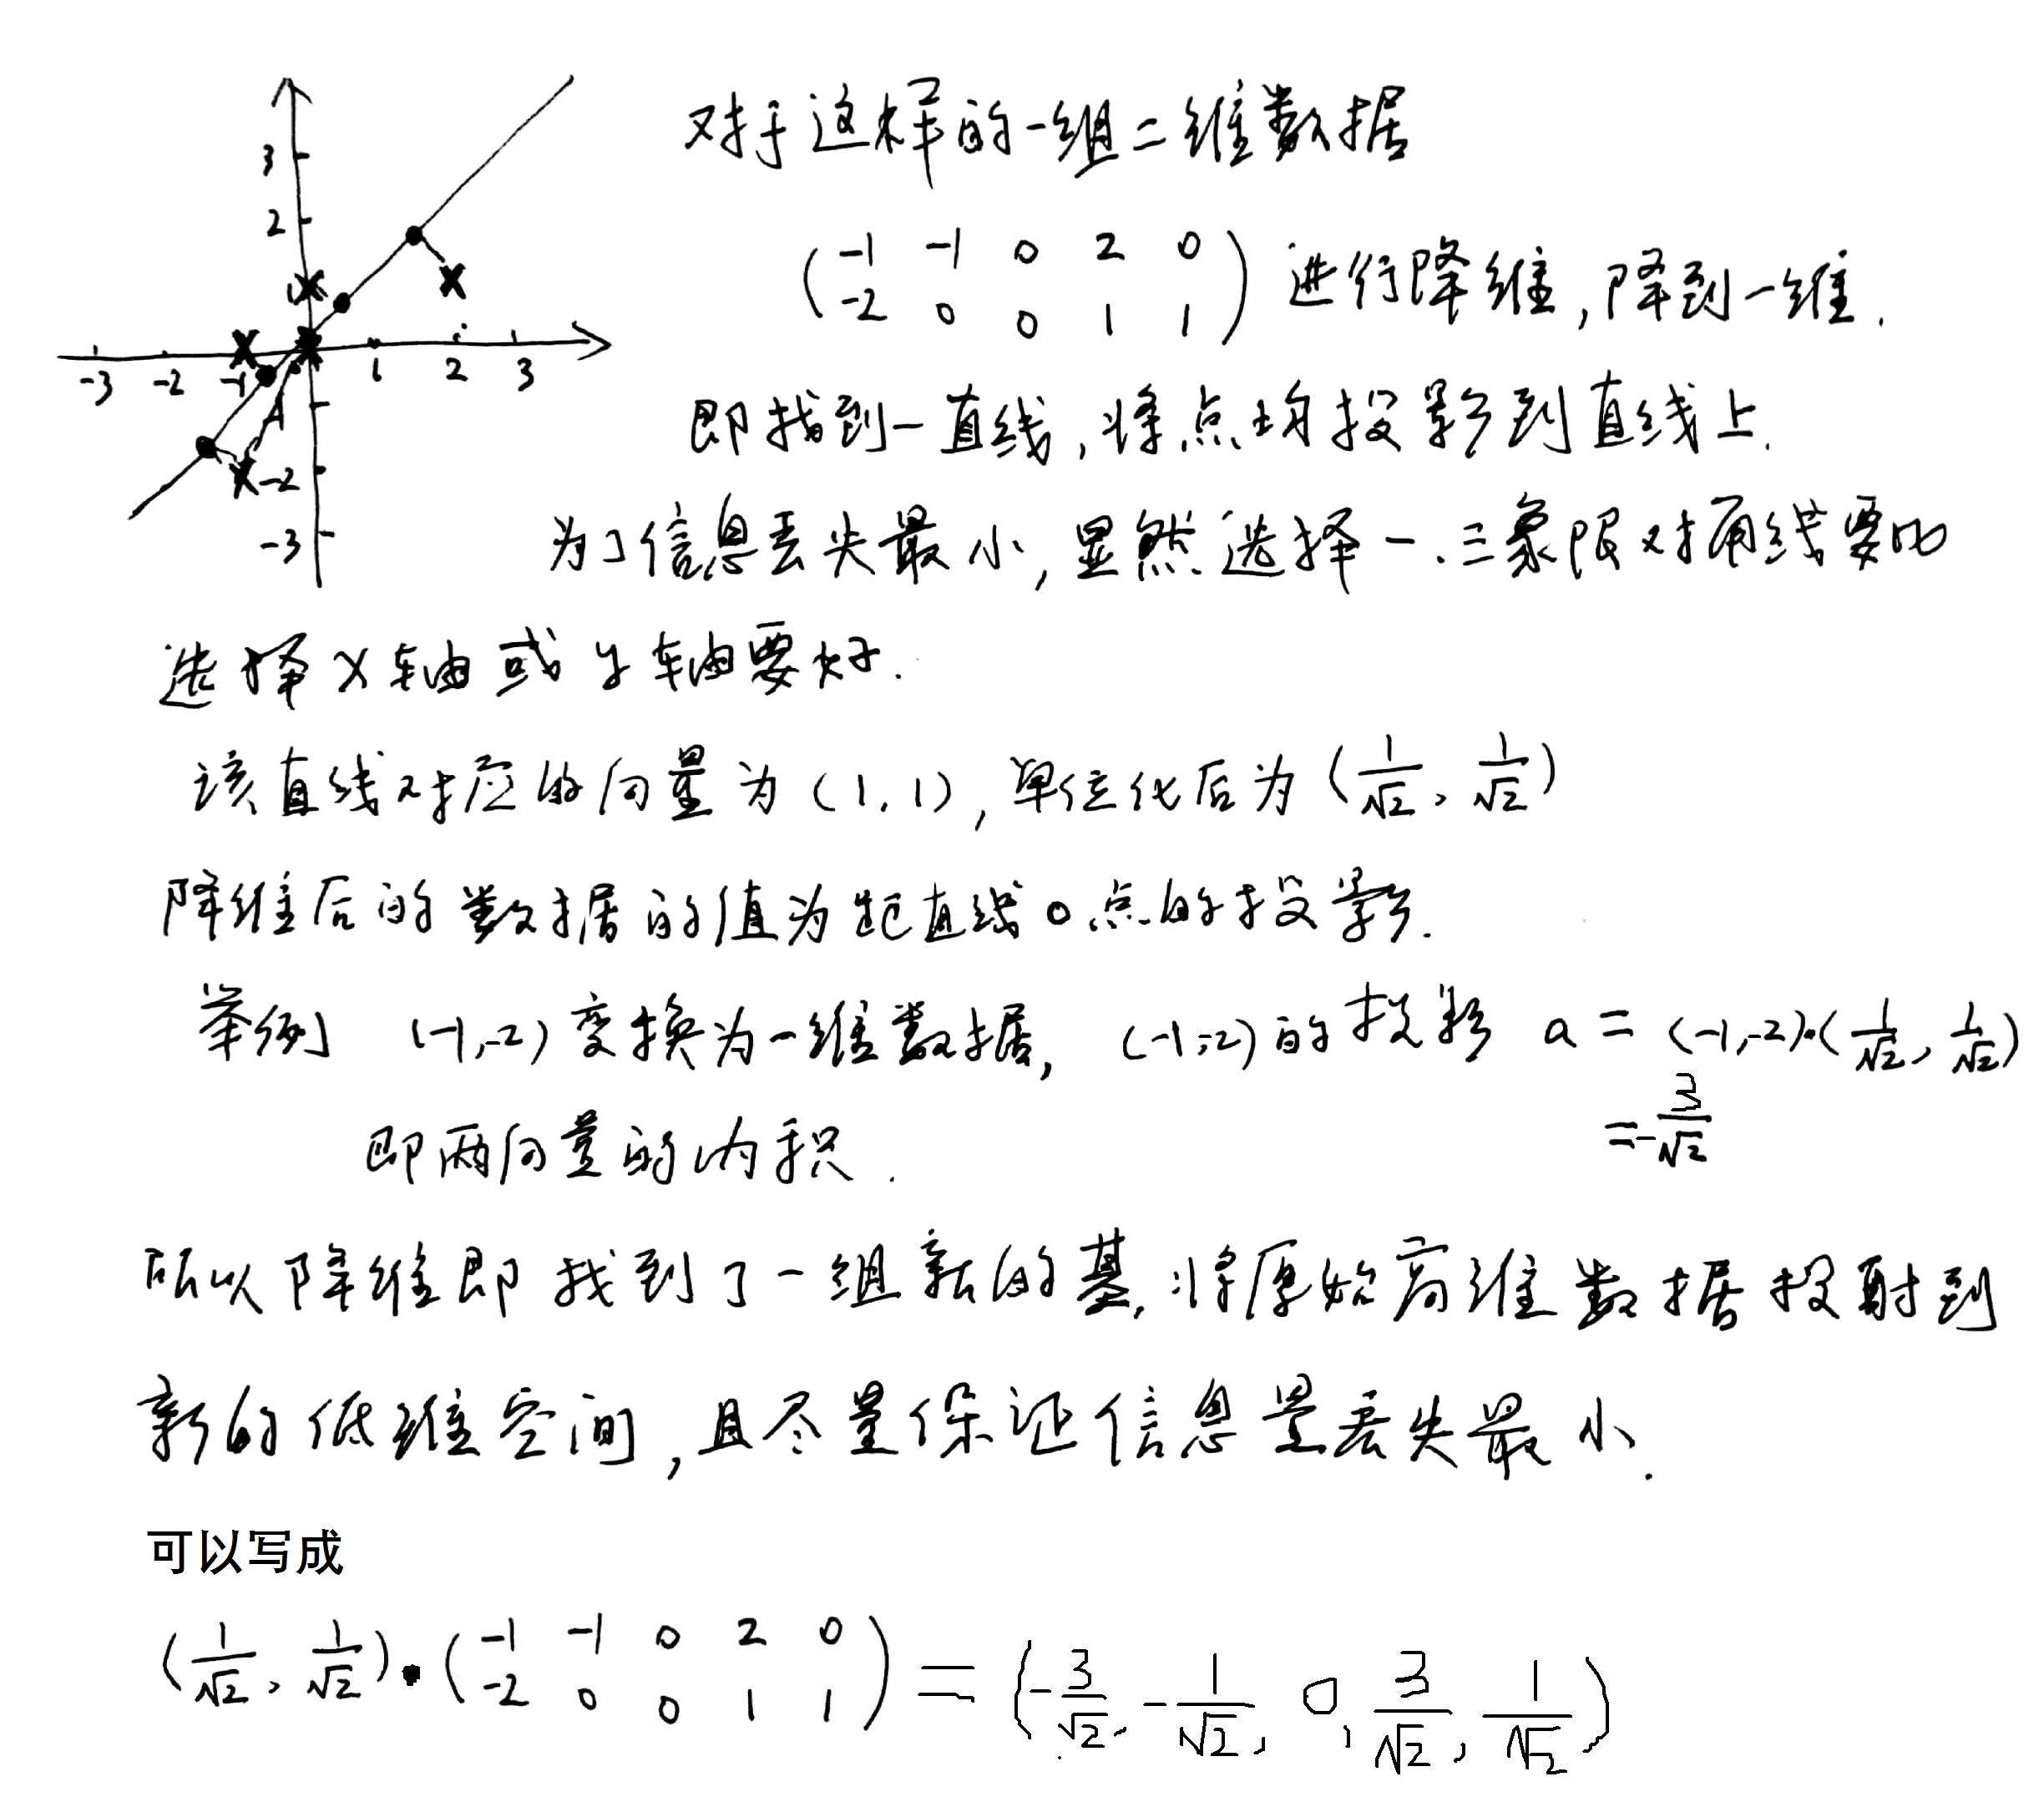 对于这样的一组二维数据
3
2
(-1 -1 0 2 0
-2 0 0 1 1) 进行降维,降到一维.
-3 -2 -1 1 2 3
A
即找到一直线,将点均投影到直线上.
-2
-3
为了信息丢失最小,显然选择一.三象限对角线要比
选择x轴或y轴要好.
该直线对应的向量为(1,1),单位化后为(1/√2, 1/√2)
降维后的数据的值为距直线0点的投影.
举例 (-1,-2)变换为一维数据, (-1,-2)的投影 a = (-1,-2)·(1/√2, 1/√2)
= -3/√2
即两向量的内积.
所以降维即找到了一组新的基,将原始高维数据投射到
新的低维空间,且尽量保证信息量丢失最小.
可以写成
(1/√2, 1/√2)·(-1 -1 0 2 0
-2 0 0 1 1) = (-3/√2, -1/√2, 0, 3/√2, 1/√2)